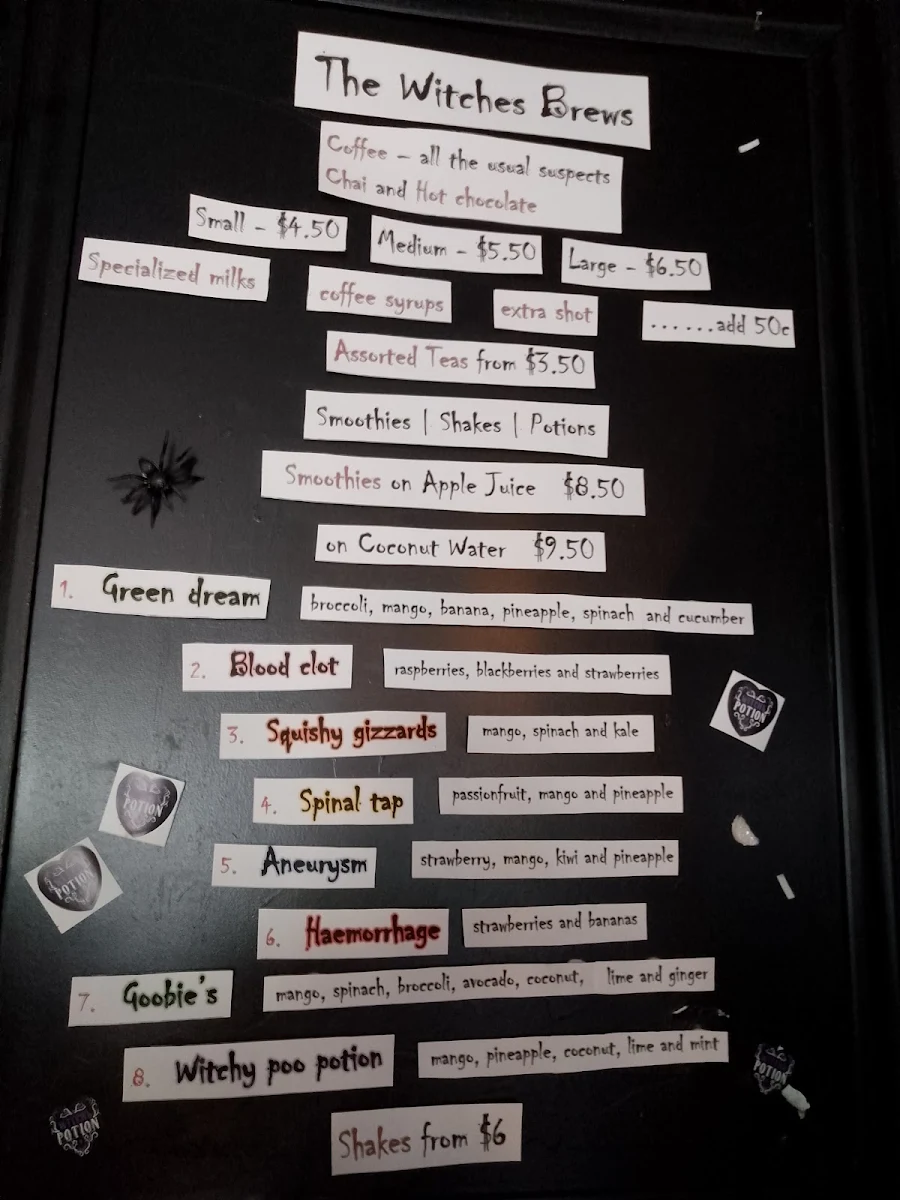 The Witches Brews
Coffee – all the usual suspects
Chai and Hot chocolate
Small – $4.50 Medium – $5.50 Large – $6.50
Specialized milks coffee syrups extra shot ......add 50c
Assorted Teas from $3.50
Smoothies | Shakes | Potions
Smoothies on Apple Juice $8.50
on Coconut Water $9.50
1. Green dream broccoli, mango, banana, pineapple, spinach and cucumber
2. Blood clot raspberries, blackberries and strawberries
3. Squishy gizzards mango, spinach and kale
POTION
4. Spinal tap passionfruit, mango and pineapple
POTION
5. Aneurysm strawberry, mango, kiwi and pineapple
POTION
6. Haemorrhage strawberries and bananas
7. Goobie's mango, spinach, broccoli, avocado, coconut, lime and ginger
8. Witchy poo potion mango, pineapple, coconut, lime and mint
POTION
POTION
Shakes from $6